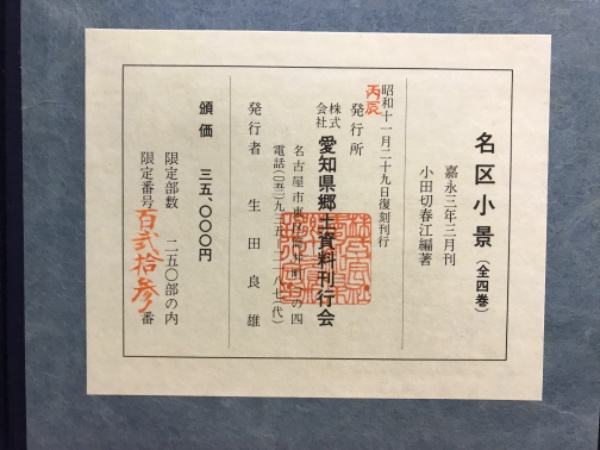 名区小景(全四巻)
嘉永三年三月刊
小田切春江編著
昭和十一月二十九日復刻刊行
丙辰
発行所
株式会社 愛知県郷土資料刊行会
名古屋市東区
の四
電話(〇五二)九三五―二一八七(代)
発行者 生田良雄
頒価 三五、〇〇〇円
限定部数 二五〇部の内
限定番号百弐拾参番